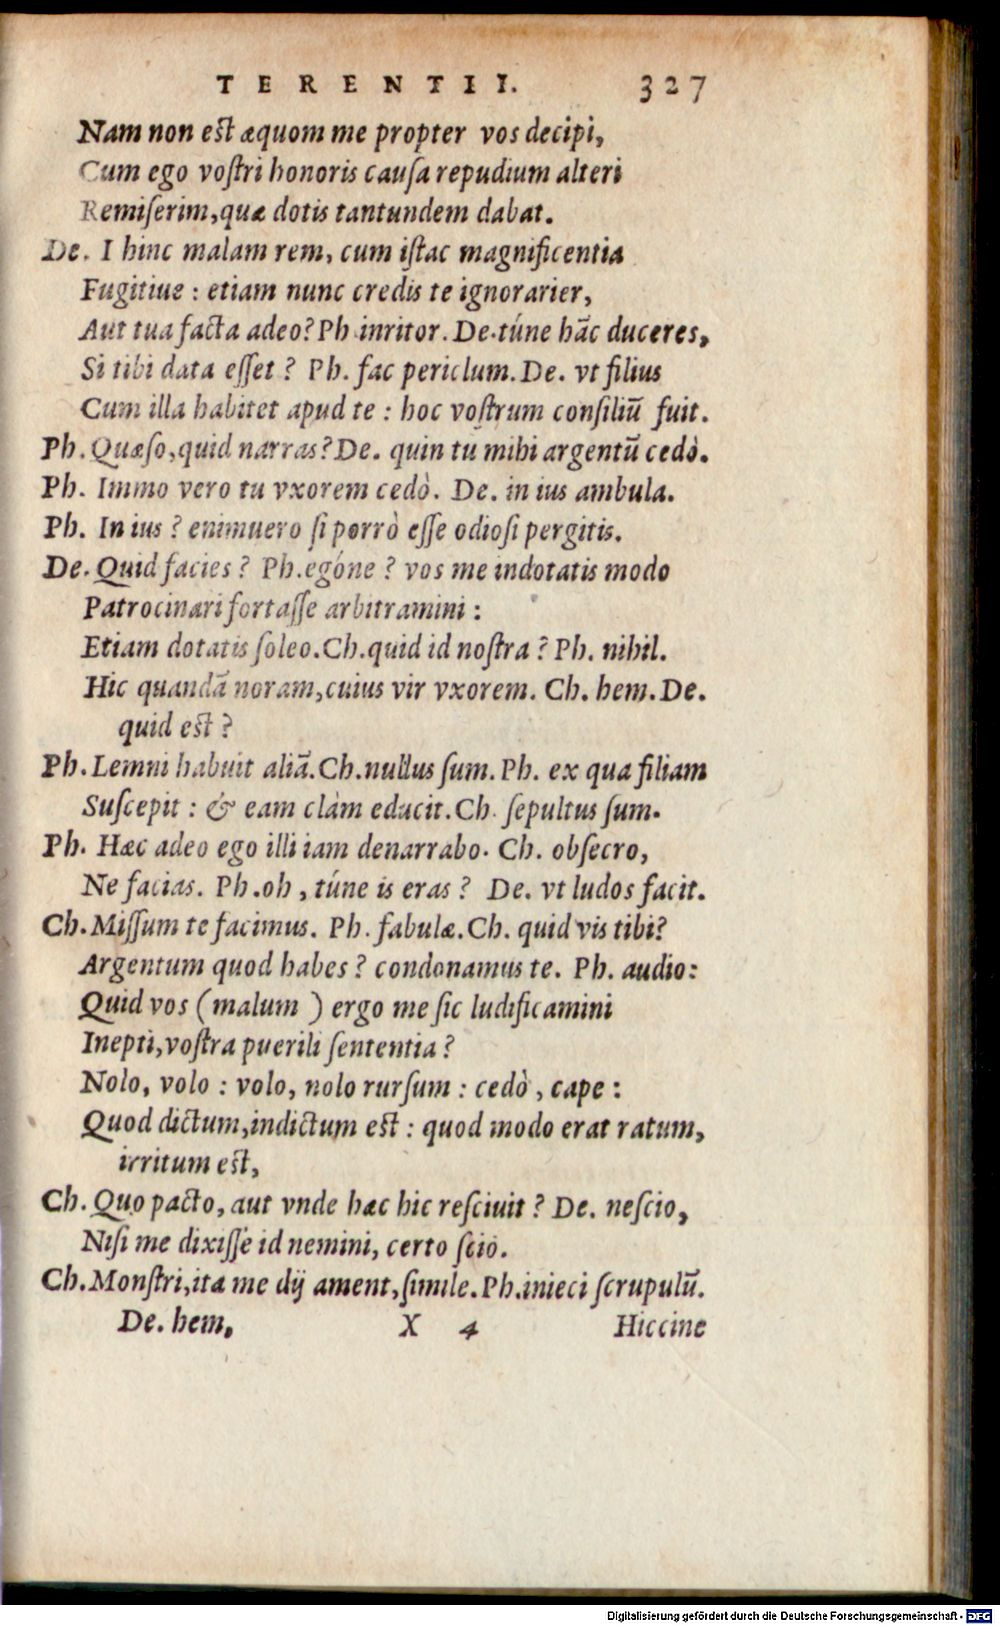 TERENTII. 327
Nam non est æquom me propter vos decipi,
Cum ego voſtri honoris cauſa repudium alteri
Remiſerim,quæ dotis tantundem dabat.
De. I hinc malam rem, cum iſtac magnificentia
Fugitiue : etiam nunc credis te ignorarier,
Aut tua facta adeo? Ph.inritor. De.túne hāc duceres,
Si tibi data eſſet ? Ph. fac periclum. De. vt filius
Cum illa habitet apud te : hoc voſtrum conſiliū fuit.
Ph. Quæſo,quid narras? De. quin tu mihi argentū cedò.
Ph. Immo vero tu vxorem cedò. De. in ius ambula.
Ph. In ius ? enimuero ſi porrò eſſe odioſi pergitis.
De. Quid facies ? Ph.egóne ? vos me indotatis modo
Patrocinari fortaſſe arbitramini :
Etiam dotatis ſoleo. Ch.quid id noſtra ? Ph. nihil.
Hic quandā noram,cuius vir vxorem. Ch. hem. De.
quid est ?
Ph. Lemni habuit aliā. Ch.nullus ſum. Ph. ex qua filiam
Suſcepit : & eam clàm educit. Ch. ſepultus ſum.
Ph. Hæc adeo ego illi iam denarrabo. Ch. obſecro,
Ne facias. Ph.oh , túne is eras ? De. vt ludos facit.
Ch. Miſſum te facimus. Ph. fabulæ. Ch. quid vis tibi?
Argentum quod habes ? condonamus te. Ph. audio:
Quid vos (malum ) ergo me ſic ludificamini
Inepti,voſtra puerili ſententia ?
Nolo, volo : volo, nolo rurſum : cedò , cape :
Quod dictum,indictum est : quod modo erat ratum,
irritum est,
Ch. Quo pacto, aut vnde hæc hic reſciuit ? De. neſcio,
Niſi me dixiſſe id nemini, certo ſcio.
Ch. Monſtri,ita me dij ament,ſimile. Ph.inieci ſcrupulū.
De. hem, X 4 Hiccine
Digitalisierung gefördert durch die Deutsche Forschungsgemeinschaft - DFG